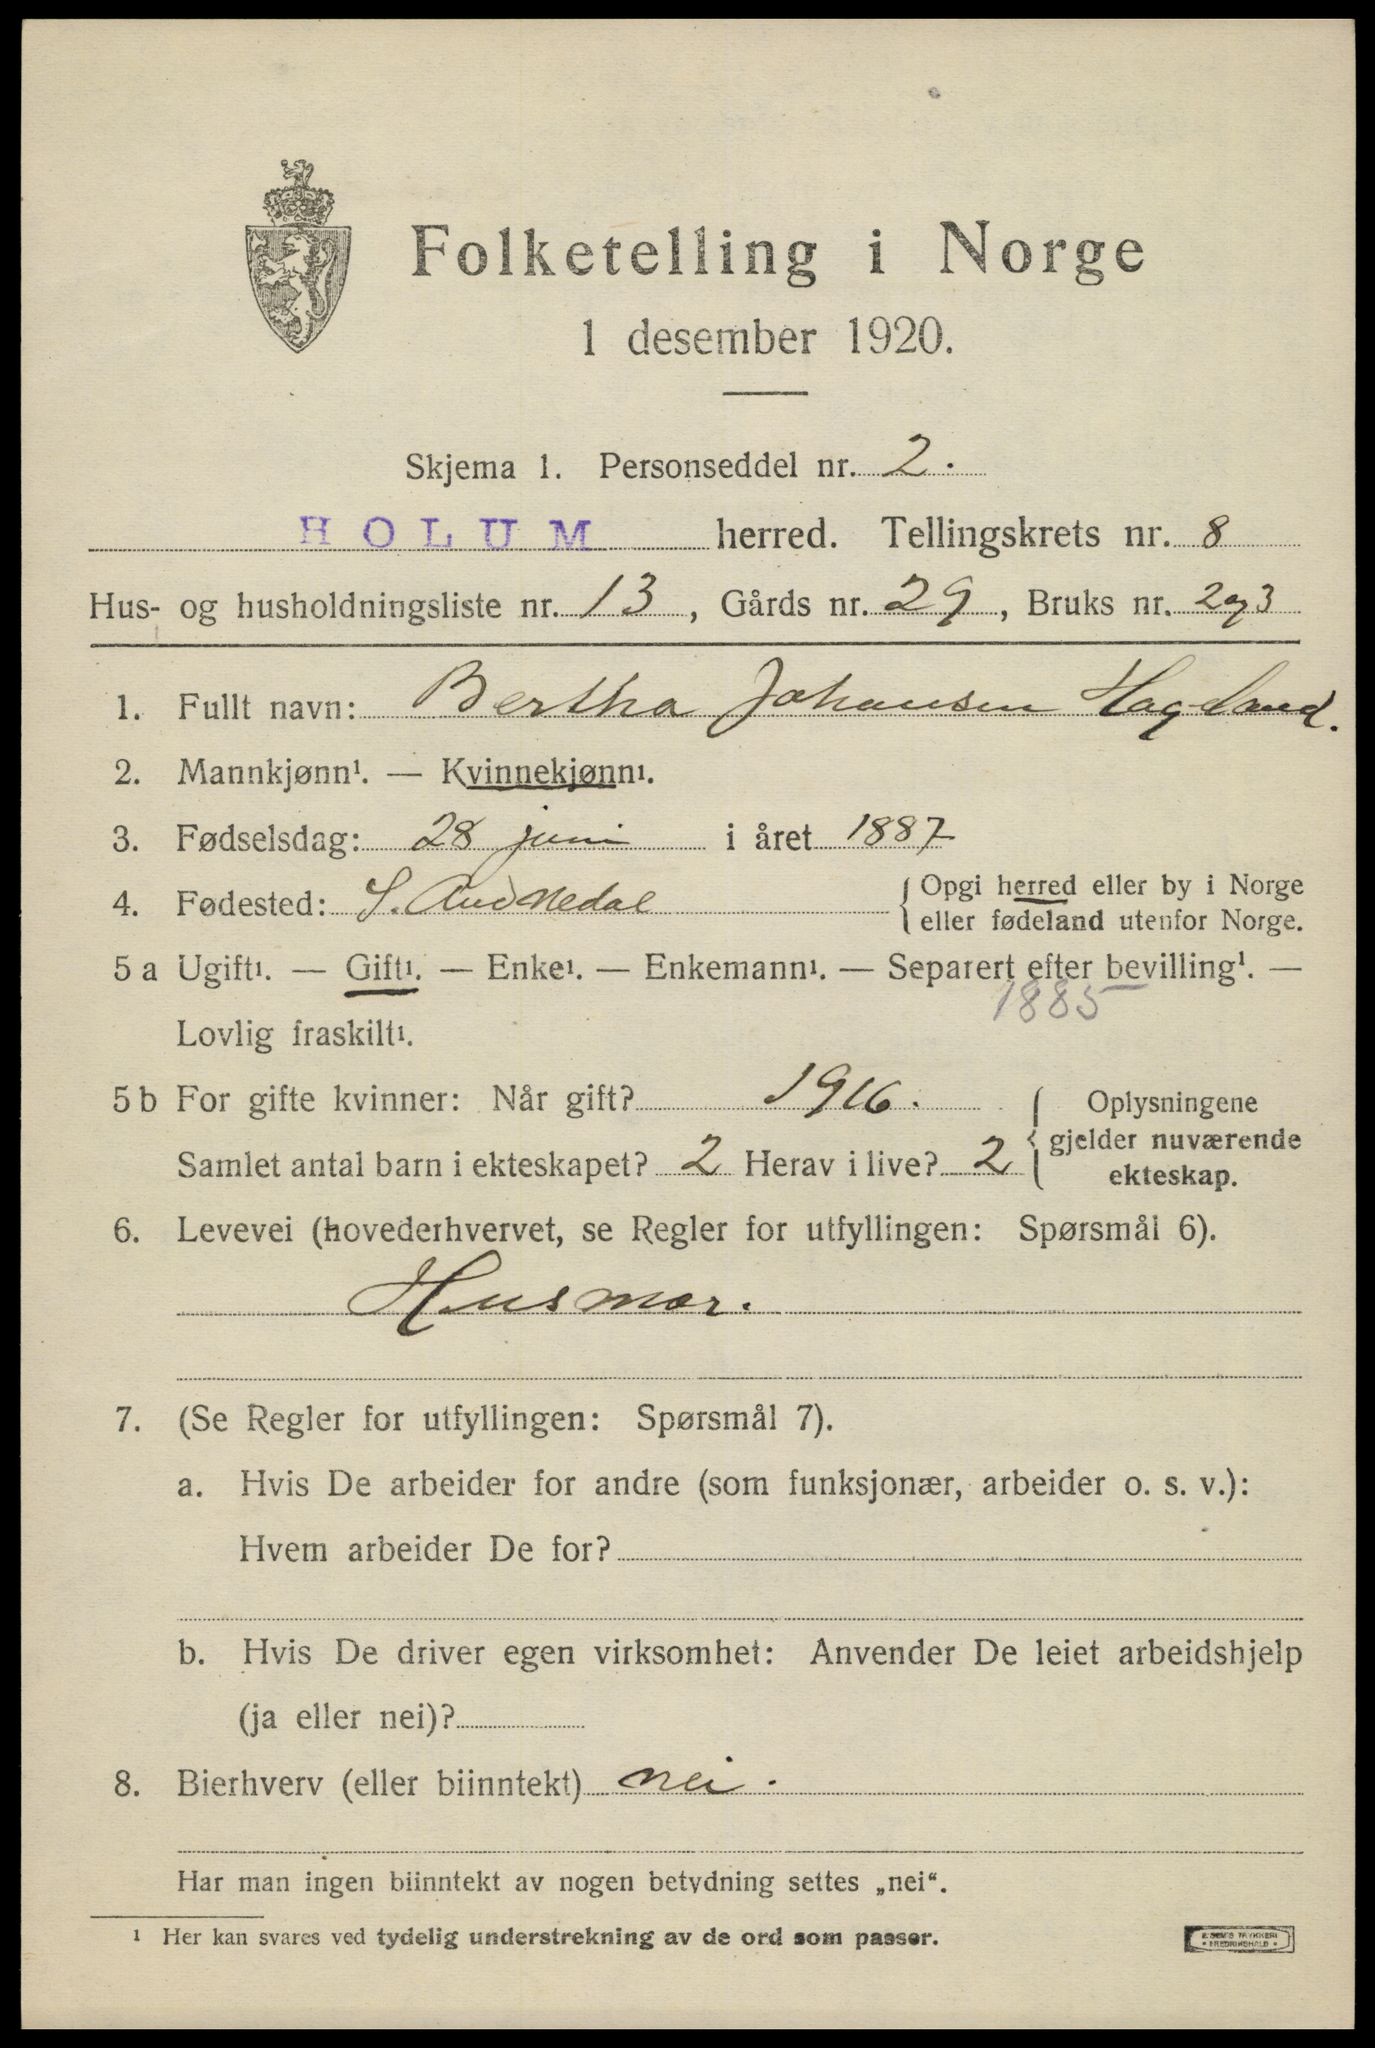 Folketelling i Norge
1 desember 1920.
Skjema 1. Personseddel nr. 2.
HOLUM herred. Tellingskrets nr. 8
Hus- og husholdningsliste nr. 13, Gårds nr. 29, Bruks nr. 2 og 3
1. Fullt navn: Bertha Johansen Hageland.
2. Mannkjønn¹. — Kvinnekjønn¹.
3. Fødselsdag: 28 juni i året 1887
4. Fødested: S. Audnedal { Opgi herred eller by i Norge
eller fødeland utenfor Norge.
5 a Ugift¹. — Gift¹. — Enke¹. — Enkemann¹. — Separert efter bevilling¹. —
1885
Lovlig fraskilt¹.
5 b For gifte kvinner: Når gift? 1916. { Oplysningene
gjelder nuværende
Samlet antal barn i ekteskapet? 2 Herav i live? 2
ekteskap.
6. Levevei (hovederhvervet, se Regler for utfyllingen: Spørsmål 6).
Husmor.
7. (Se Regler for utfyllingen: Spørsmål 7).
a. Hvis De arbeider for andre (som funksjonær, arbeider o. s. v.):
Hvem arbeider De for?
b. Hvis De driver egen virksomhet: Anvender De leiet arbeidshjelp
(ja eller nei)?
8. Bierhverv (eller biinntekt) nei.
Har man ingen biinntekt av nogen betydning settes „nei“.
¹ Her kan svares ved tydelig understrekning av de ord som passer.
E. SEM'S TRYKKERI
• FREDRIKSHALD •